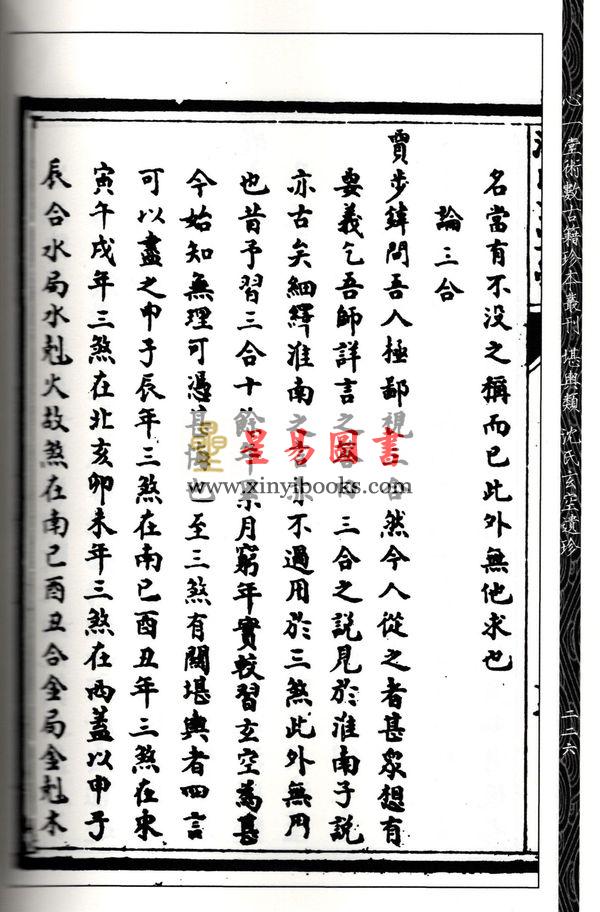 心一堂術數古籍珍本叢刊 堪輿類 沈氏玄空遺珍
二二六
名當有不没之稱而已此外無他求也
論三合
賈步緯問吾人極鄙視三合然今人從之者甚衆想有
要義乞吾師詳言之 三合之説見於淮南子説
亦古矣細繹淮南之言亦不過用於三煞此外無用
也昔予習三合十餘年 月窮年實較習玄空為甚
今始知無理可憑 至三煞有關堪輿者四言
可以盡之申子辰年三煞在南巳酉丑年三煞在東
寅午戌年三煞在北亥卯未年三煞在西蓋以申子
辰合水局水剋火故煞在南巳酉丑合金局金剋木
星易圖書
www.xinyibooks.com